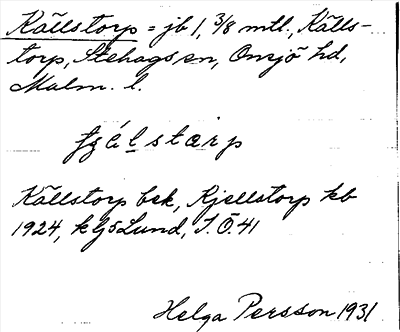 Källstorp = jb 1, 3/8 mtl., Källs-
torp, Stehags sn, Onsjö hd,
Malm. l.
Källstorp bek, Kjellstorp kb
1924, Lund, 1931
Helga Persson 1931